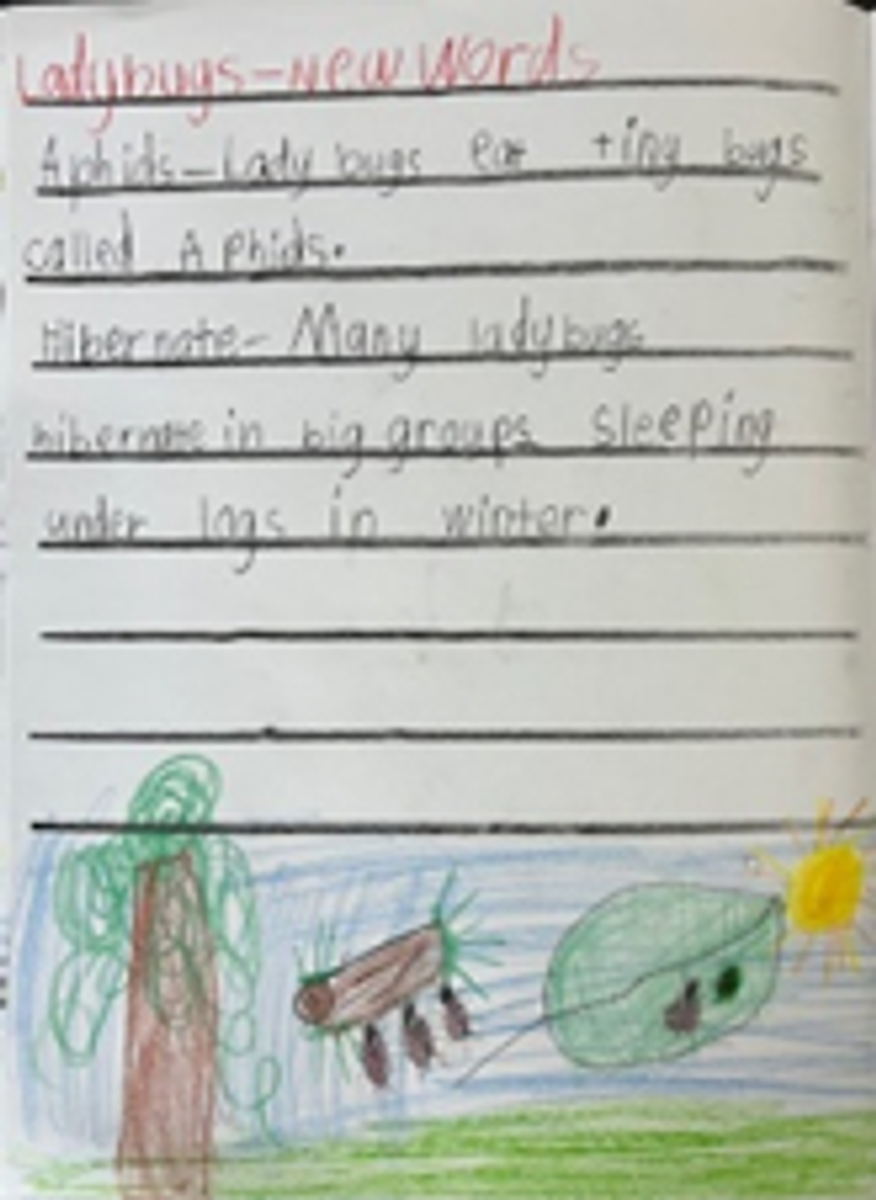 Ladybugs-new words
Aphids-Lady bugs eat tiny bugs
called A phids.
Hibernate- Many ladybugs
hibernate in big groups sleeping
under logs in winter.